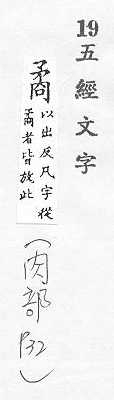 19五經文字
矞
以出反凡字從
矞者皆放此
(㕯部 P32)